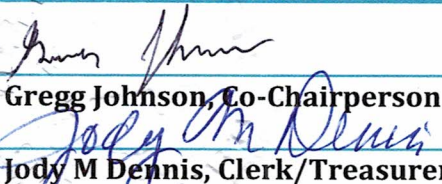 Gregg Johnson, Co-Chairperson
Jody M Dennis
Jody M Dennis, Clerk/Treasurer